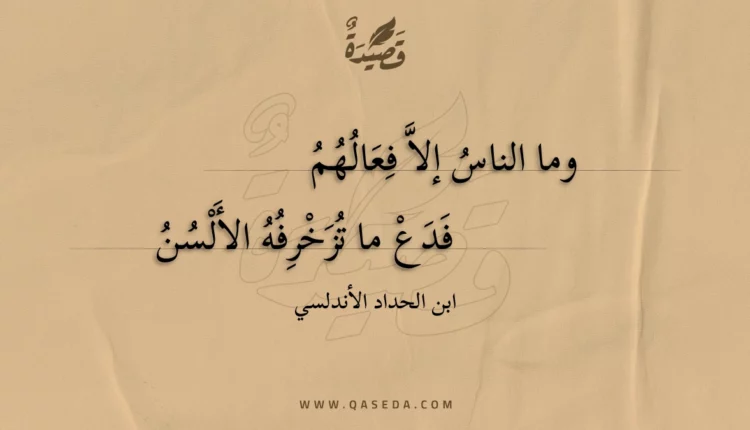 قَصِيْدَةٌ
وما الناسُ إلاَّ فِعَالُهُمُ
فَدَعْ ما تُزَخْرِفُهُ الأَلْسُنُ
ابن الحداد الأندلسي
WWW.QASEDA.COM